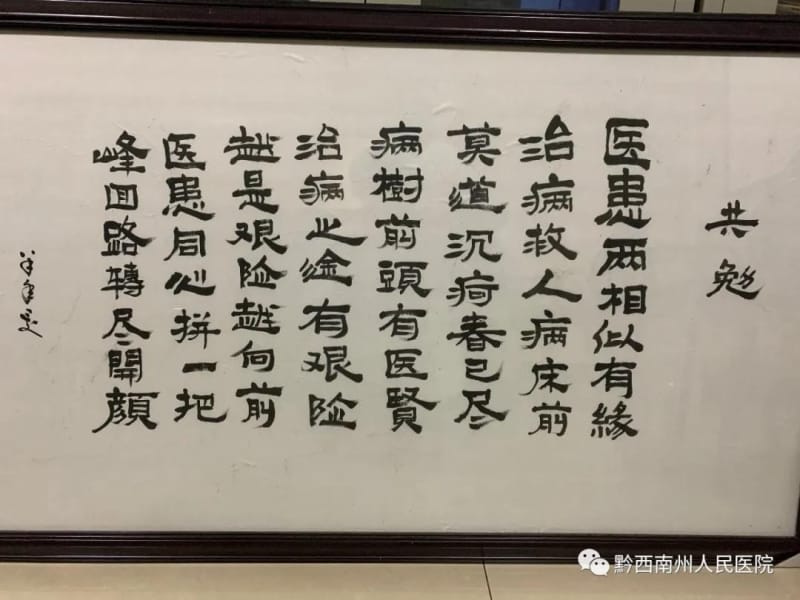 共勉
医患两相似有緣
治病救人病床前
莫道沉疴春已尽
病樹前頭有医賢
治病之途有艰险
越是艰险越向前
医患同心拼一把
峰回路轉尽開顔
黔西南州人民医院